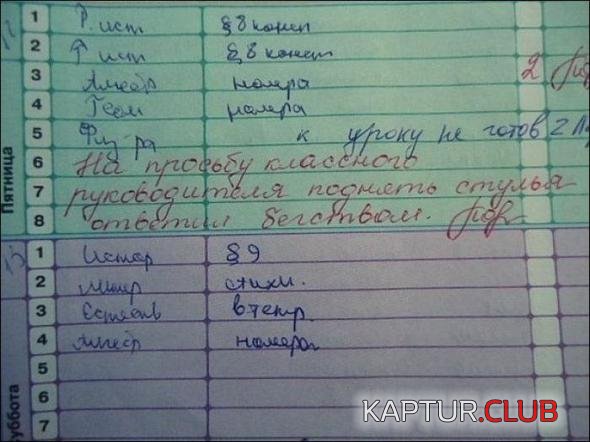 1 Р. ист § 8 конец
2 Р ист § 8 конец
3 Алгебр номера 2
4 Геом номера
5 Физ-ра к уроку не готов 2
6 На просьбу классного
Пятница
7 руководителя поднять стулья
8 ответил бегством.
1 Истор § 9
2 Литер стихи.
3 Естеств в тетр.
4 Алгебр номера
5
6
7
уббота
KAPTUR.CLUB